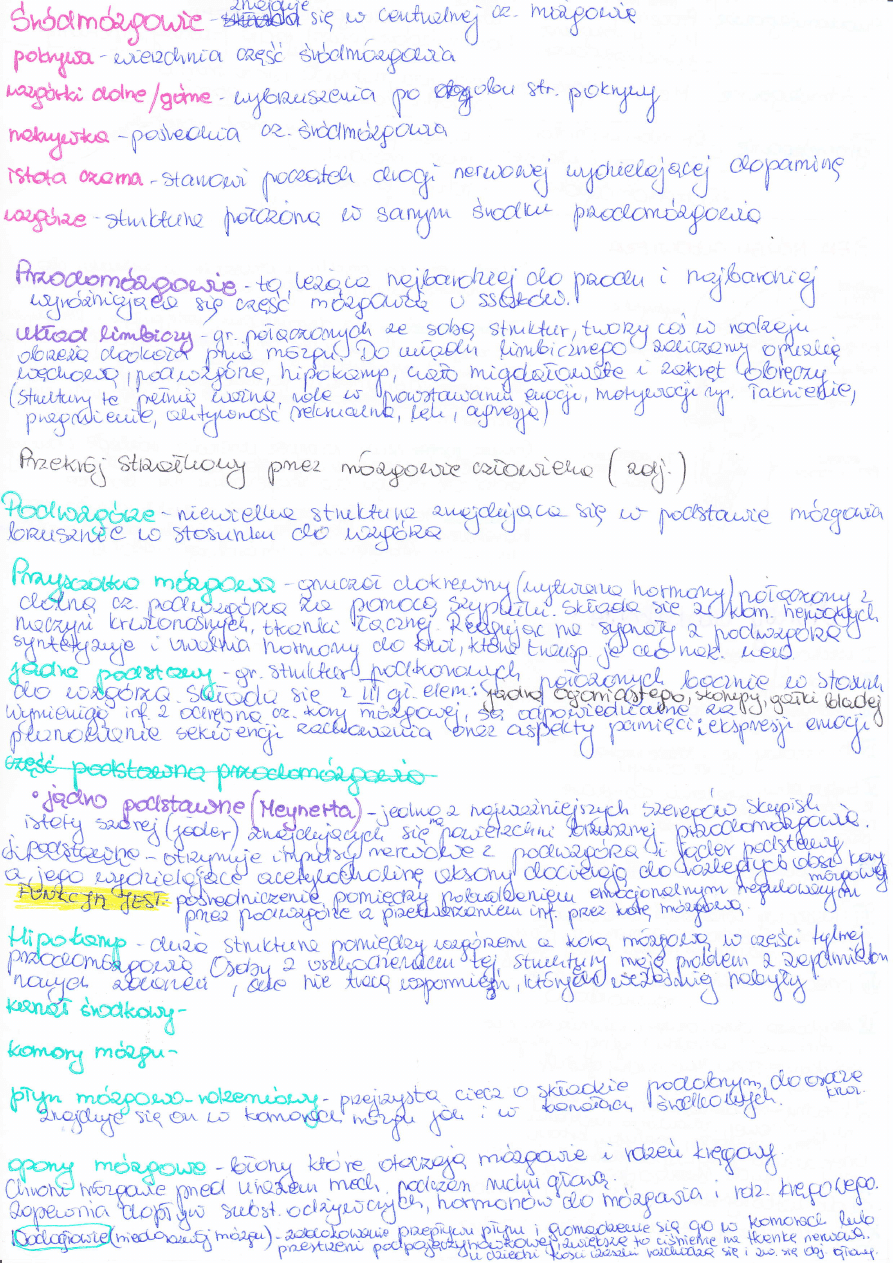 znajduje
Śródmózgowie - się w centralnej cz. mózgowie
pokrywa - wierzchnia część śródmózgowia
wzgórki dolne/górne - wybrzuszenia po obu str. pokrywy
nakrywka - pośrednia cz. śródmózgowia
istota czarna - stanowi początek drogi nerwowej wydzielającej dopaminę
wzgórze - struktura położona w samym środku przodomózgowia
Przodomózgowie - to leżąca najbardziej do przodu i najbardziej
wyróżniająca się część mózgowia u ssaków.
układ limbiczny - gr. połączonych ze sobą struktur, tworzy coś w rodzaju
obrzeża dookoła pnia mózgu. Do układu limbicznego zaliczamy opuszkę
węchową, podwzgórze, hipokamp, ciało migdałowate i zakręt obręczy
(struktury te pełnią ważną rolę w powstawaniu emocji, motywacji np. łaknienie,
pragnienie, aktywność seksualna, lęk, agresja)
Przekrój strzałkowy przez mózgowie człowieka (zdj.)
Podwzgórze - niewielka struktura znajdująca się w podstawie mózgowia
brzusznie w stosunku do wzgórza
Przysadka mózgowa - gruczoł dokrewny (wytwarza hormony) połączony z
dolną cz. podwzgórza za pomocą szypułki. Składa się z kom. nerwowych
naczyń krwionośnych, tkanki łącznej. Reagując na sygnały z podwzgórza
syntetyzuje i uwalnia hormony do krwi, która transp. je do
jądra podstawy - gr. struktur podkorowych położonych bocznie w stosunku
do wzgórza. Składa się z III gł. elem: jądra ogoniastego, skorupy, gałki bladej
wymieniają inf. z odrębną cz. kory mózgowej, są odpowiedzialne za
planowanie sekwencji zachowania oraz aspekty pamięci i ekspresji emocji
część podstawna przodomózgowia
• jądro podstawne (Meynerta) - jedno z najważniejszych szeregów skupisk
istoty szarej (jąder) znajdujących się na powierzchni brzusznej przodomózgowia.
j. podstawne - otrzymuje impulsy nerwowe z podwzgórza i jąder podstawy
a jego wydzielające acetylocholinę aksony docierają do rozległych obsz. kory
mózgowej
FUNKCJĄ JEST: pośredniczenie pomiędzy pobudzeniem emocjonalnym regulowanym
przez podwzgórze a przetwarzaniem inf. przez korę mózgową.
Hipokamp - duża struktura pomiędzy wzgórzem a korą mózgową, w części tylnej
przodomózgowia. Osoby z uszkodzeniem tej struktury mają problem z zapamiętan
nowych zdarzeń, ale nie tracą wspomnień, których wcześniej nabyły
kanał środkowy -
komory mózgu -
płyn mózgowo-rdzeniowy - przejrzysta ciecz o składzie podobnym do osocza
krwi.
znajduje się on w komorach mózgu jak i w kanałach środkowych.
opony mózgowe - błony które otaczają mózgowie i rdzeń kręgowy.
Chroni mózgowie przed urazem mech. podczas ruchu głową.
zapewnia dopływ subst. odżywczych, hormonów do mózgowia i rdz. kręgowego.
Wodogłowie - zablokowanie przepływu płynu i gromadzenie się go w komorach lub
przestrzeni podpajęczynówkowej, zwiększa to ciśnienie na tkankę nerwową.
u dzieci kości czaszki rozchodzą się i zw. się obj. głowy.